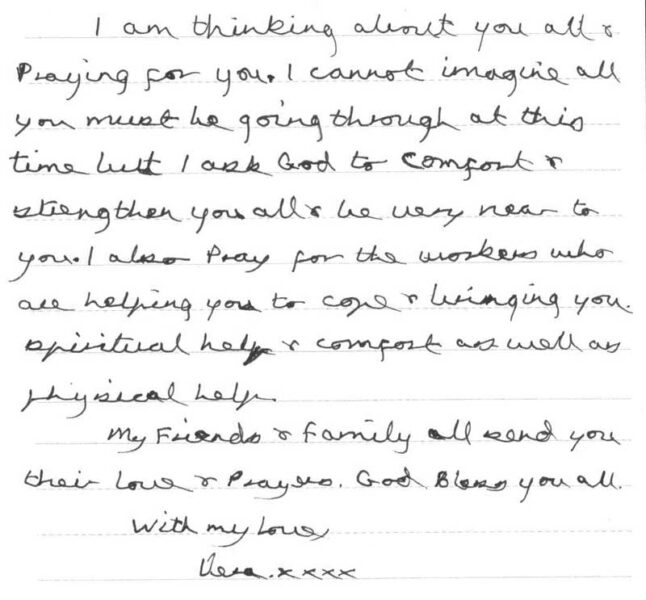 I am thinking about you all &
Praying for you. I cannot imagine all
you must be going through at this
time but I ask God to comfort &
strengthen you all & be very near to
you. I also Pray for the workers who
are helping you to cope & bringing you
spiritual help & comfort as well as
physical help.
My Friends & Family all send you
their Love & Prayers. God Bless you all.
With my Love
Vera. xxxx